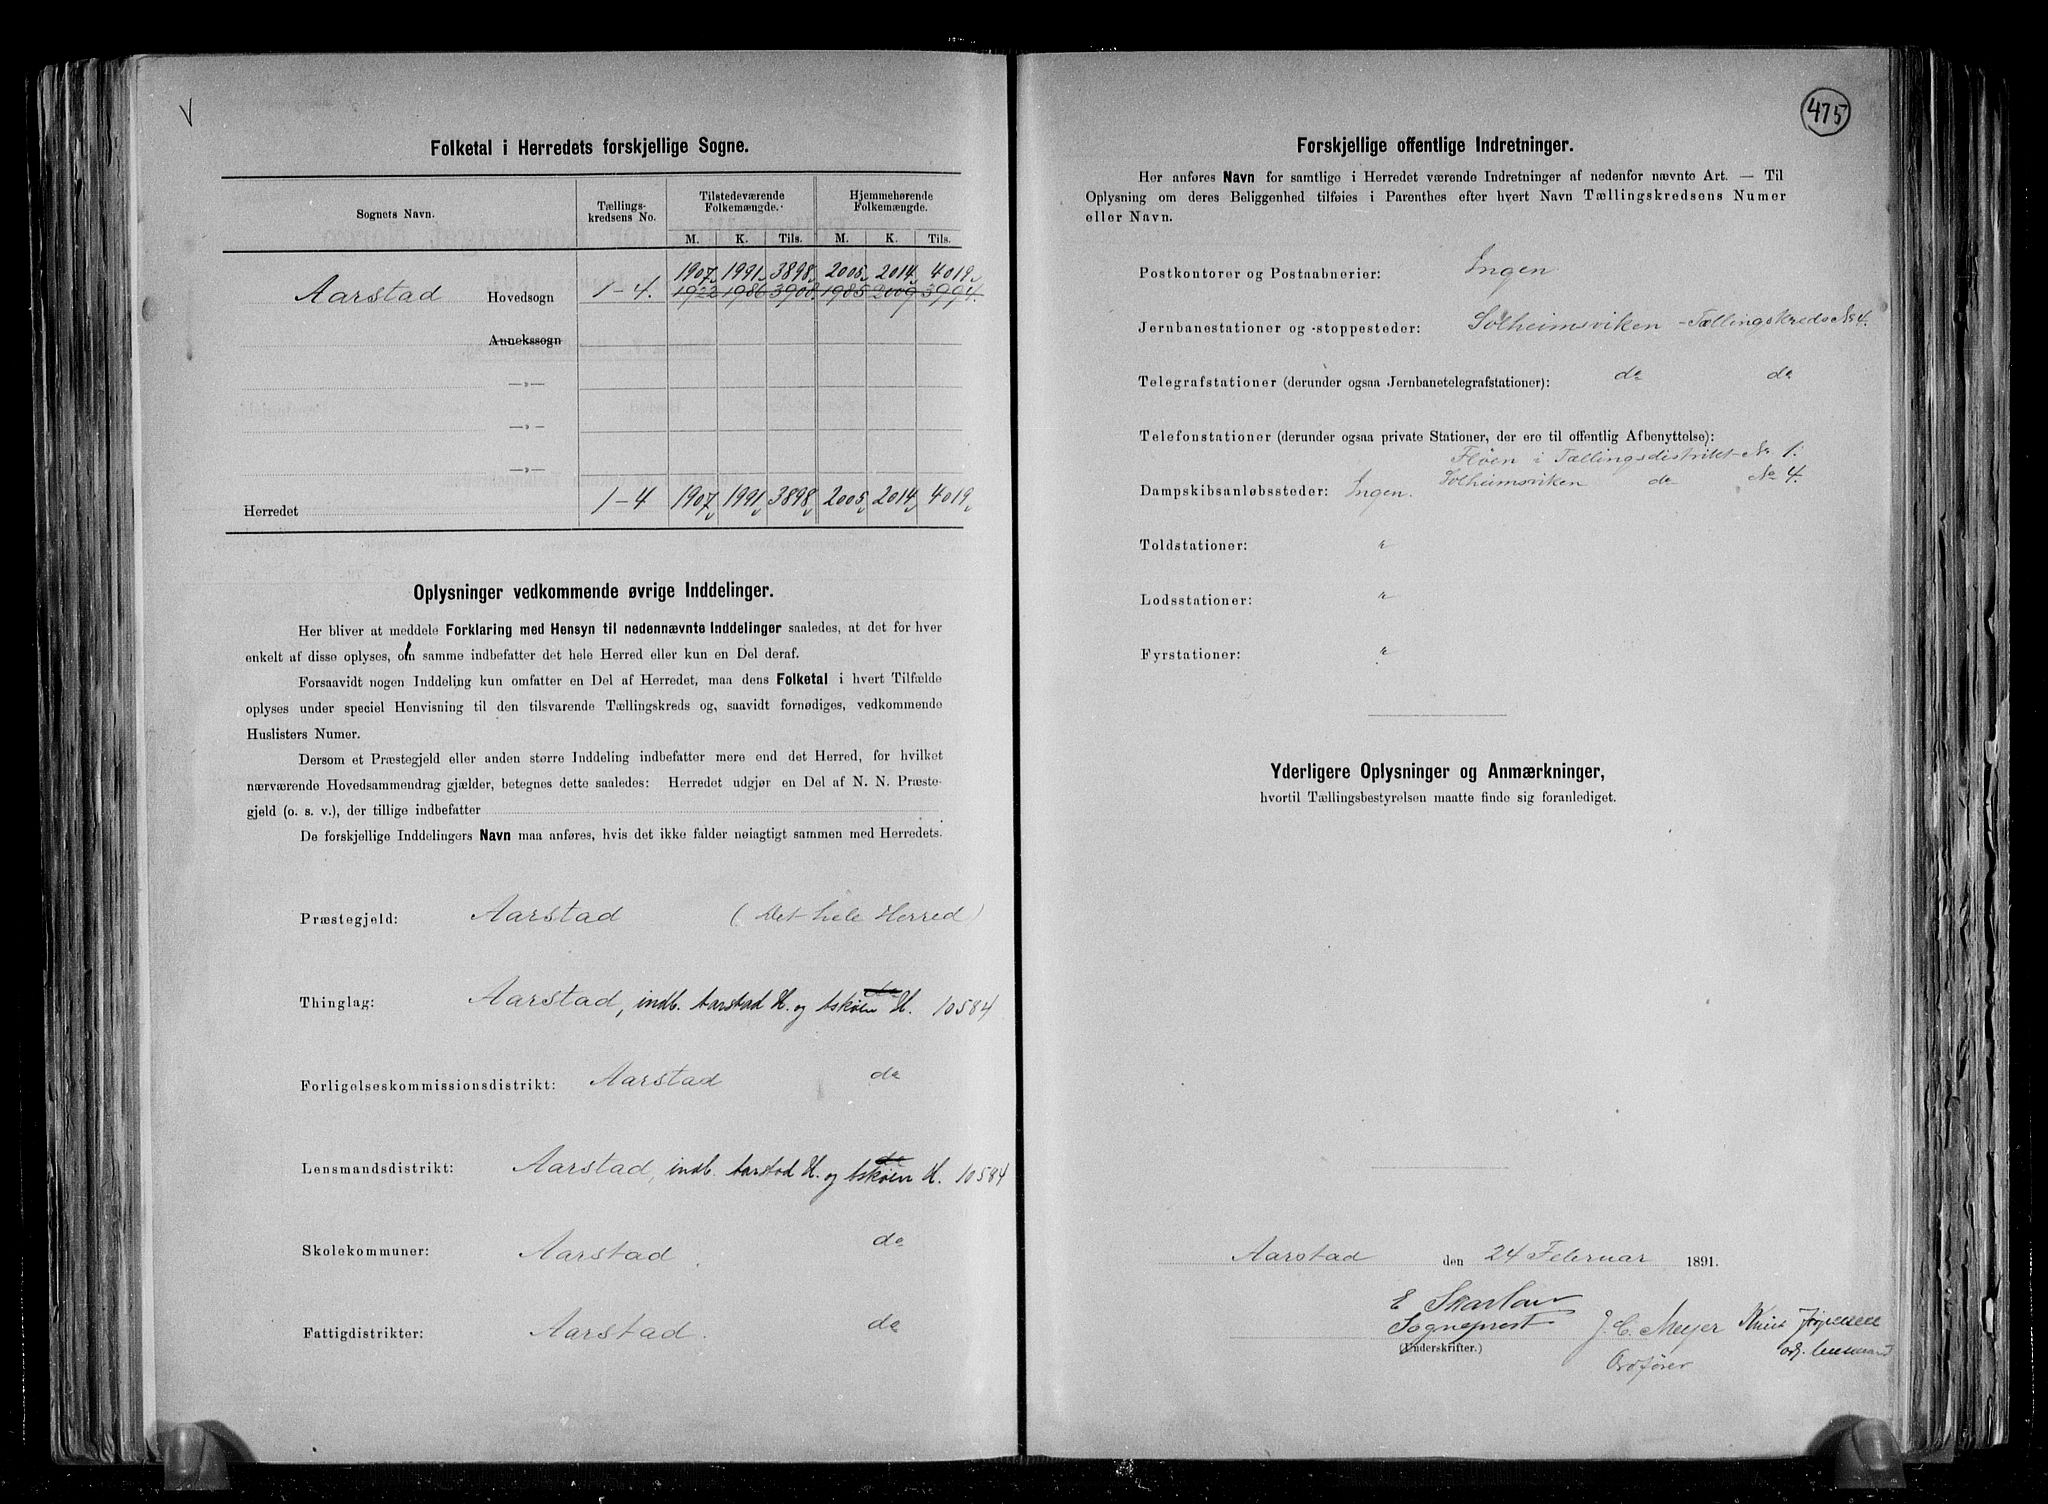 V
Folketal i Herredets forskjellige Sogne.
Sognets Navn.
Tællings-
kredsens No.
Tilstedeværende
Folkemængde.
Hjemmehørende
Folkemængde.
M. K. Tils. M. K. Tils.
1907 1991 3898 2005 2014 4019
Aarstad Hovedsogn 1-4. 1922 1986 3908 1985 2009 3994
Annekssogn
—»—
—»—
—»—
Herredet 1-4 1907 1991 3898 2005 2014 4019
Oplysninger vedkommende øvrige Inddelinger.
Her bliver at meddele Forklaring med Hensyn til nedennævnte Inddelinger saaledes, at det for hver
enkelt af disse oplyses, om samme indbefatter det hele Herred eller kun en Del deraf.
Forsaavidt nogen Inddeling kun omfatter en Del af Herredet, maa dens Folketal i hvert Tilfælde
oplyses under speciel Henvisning til den tilsvarende Tællingskreds og, saavidt fornødiges, vedkommende
Huslisters Numer.
Dersom et Præstegjeld eller anden større Inddeling indbefatter mere end det Herred, for hvilket
nærværende Hovedsammendrag gjælder, betegnes dette saaledes: Herredet udgjør en Del af N. N. Præste-
gjeld (o. s. v.), der tillige indbefatter
De forskjellige Inddelingers Navn maa anføres, hvis det ikke falder nøiagtigt sammen med Herredets.
Præstegjeld: Aarstad (Det hele Herred)
Thinglag: Aarstad, indb. Aarstad H. og Askøen H. 10584
Forligelseskommissionsdistrikt: Aarstad do
Lensmandsdistrikt: Aarstad, indb. Aarstad H. og Askøen H. 10584
Skolekommuner: Aarstad. do
Fattigdistrikter: Aarstad. do
475
Forskjellige offentlige Indretninger.
Her anføres Navn for samtlige i Herredet værende Indretninger af nedenfor nævnte Art. — Til
Oplysning om deres Beliggenhed tilføies i Parenthes efter hvert Navn Tællingskredsens Numer
eller Navn.
Postkontorer og Postaabnerier: Ingen
Jernbanestationer og -stoppesteder: Solheimsviken - Tællingskreds No 4.
Telegrafstationer (derunder ogsaa Jernbanetelegrafstationer): do do
Telefonstationer (derunder ogsaa private Stationer, der ere til offentlig Afbenyttelse):
Fløen i Tællingsdistrikt No 1.
Solheimsviken do No 4.
Dampskibsanløbssteder: Ingen.
Toldstationer: "
Lodsstationer: "
Fyrstationer: "
Yderligere Oplysninger og Anmærkninger,
hvortil Tællingsbestyrelsen maatte finde sig foranlediget.
Aarstad den 24 Februar 1891.
E
Sogneprest J. C. Meyer Knut
(Underskrifter.) Ordfører